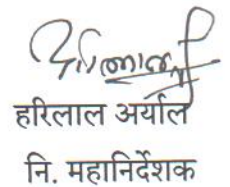 हरिलाल अर्याल
नि. महानिर्देशक